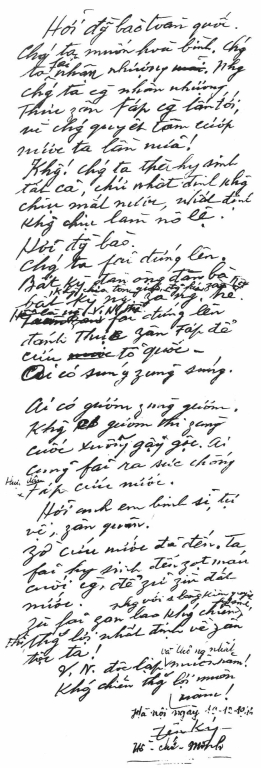 Hỡi đg̃ bào toàn quốc.
Chg' ta muốn hoà bình, chg'
ta fải nhân nhượng. Nhg
chg' ta cg̀ nhân nhượng
thực zân Fáp cg̀ lấn tới,
vì chg' quyết tâm cướp
nước ta lần nữa!
Khg! Chg' ta thà hy sinh
tất cả, chứ nhất định khg
chịu mất nước, nhất định
khg chịu làm nô lệ.
Hỡi đg̀ bào.
Chg' ta fải đứng lên.
Bất kỳ đàn ông đàn bà
bất kỳ ng` già ng` trẻ.
fải đứng lên
đánh thực zân Fáp để
cứu tổ quốc –
Ai có súng zùng súng.
Ai có gươm zùng gươm.
Khg có gươm thì zùng
cuốc xuổng gậy gộc. Ai
cũng fải ra sức chống
Fáp cứu nước.
Hỡi anh em binh sĩ, tự
vệ, zân quân.
Zờ cứu nước đã đến. Ta
fải hy sinh đến zọt máu
cuối cg̀, để zữ zìn đất
nước.
Zù fải zan lao khg' chiến,
thg' lợi nhất định về zân
tộc ta!
V.N. độc lập và thống nhất muôn năm!
Khg' chiến thg' lợi muôn
năm!
Hà nội ngày
Ký
Hồ - chí - Minh